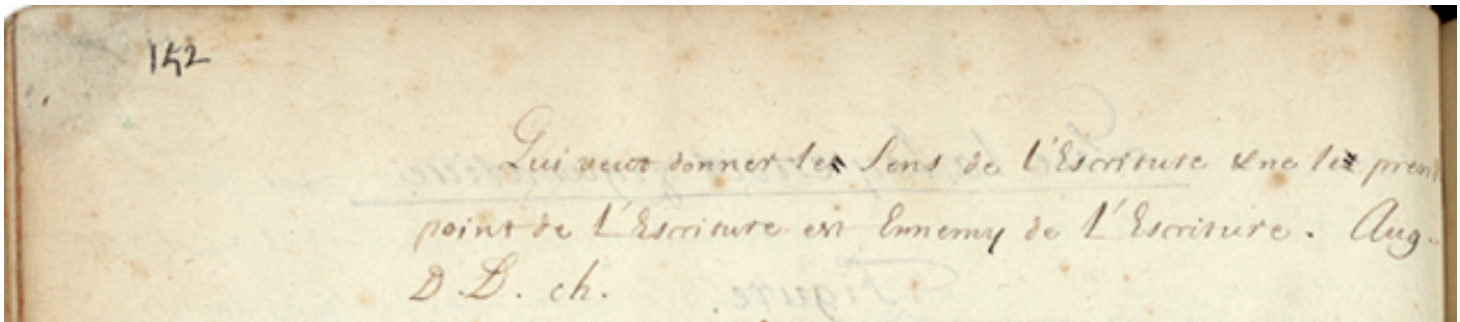 152
Qui veut donner le sens de l'Escriture & ne le prend
point de l'Escriture est Ennemy de l'Escriture. Aug.
D.D. ch.